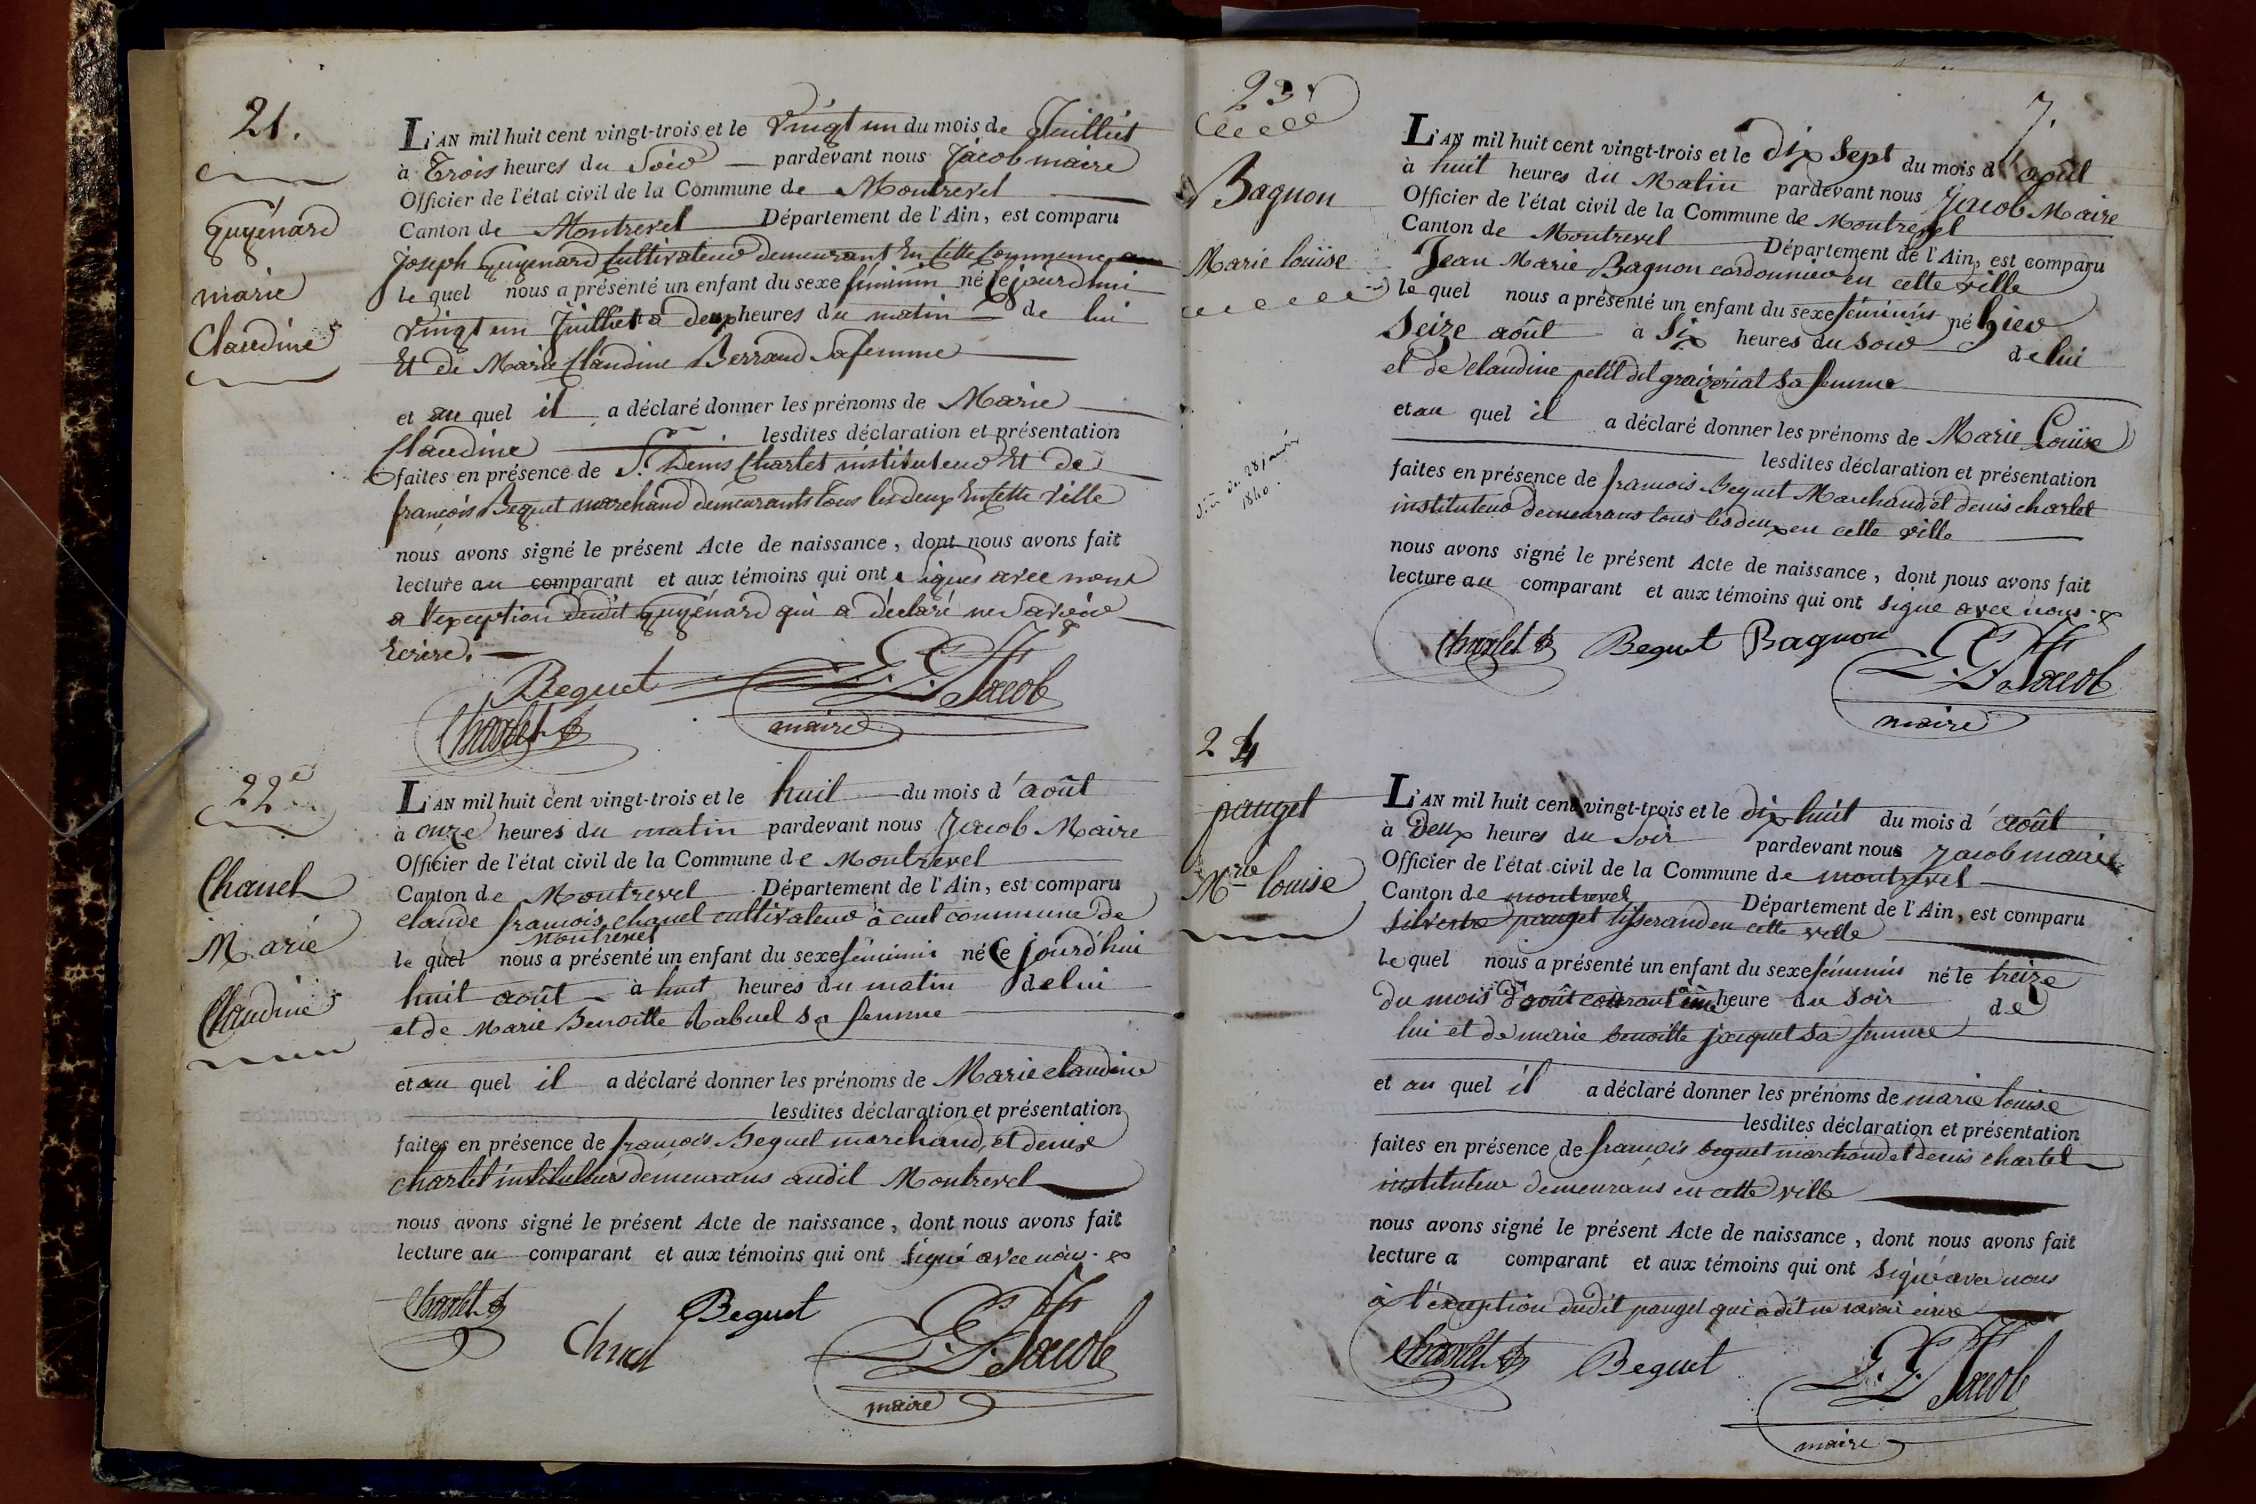 21.
Guyénard
marie
Claudine
L'AN mil huit cent vingt-trois et le vingt un du mois de Juillet
à Trois heures du Soir pardevant nous Jacob maire
Officier de l'état civil de la Commune de Montrevel
Canton de Montrevel Département de l'Ain, est comparu
Joseph Guyenard Cultivateur demeurant En Cette Commune
le quel nous a présenté un enfant du sexe féminin né Cejourdhui
vingt un Juillet à deux heures du matin de lui
Et de Marie Claudine Berraud Sa femme
et au quel il a déclaré donner les prénoms de Marie
Claudine lesdites déclaration et présentation
faites en présence de S. Denis Charlet instituteur Et de
françois Bequet marchand demeurants Tous les deux En Cette Ville
nous avons signé le présent Acte de naissance, dont nous avons fait
lecture au comparant et aux témoins qui ont Signés avec nous
a l'exception dudit Guyénard qui a déclaré ne Savoir
Ecrire.
Bequet Jacob
Charlet maire
22e
Chanel
Marie
Claudine
L'AN mil huit cent vingt-trois et le huit du mois d'août
à onze heures du matin pardevant nous Jacob Maire
Officier de l'état civil de la Commune de Montrevel
Canton de Montrevel Département de l'Ain, est comparu
claude francois chanel cultivateur à cuet commune de
Montrevel
le quel nous a présenté un enfant du sexe féminin né Ce jourd'hui
huit août à huit heures du matin de lui
et de Marie Benoitte Rabuel sa femme
et au quel il a déclaré donner les prénoms de Marie claudine
lesdites déclaration et présentation
faites en présence de françois Bequet marchand, et denis
charlet instituteurs demeurans audit Montrevel
nous avons signé le présent Acte de naissance, dont nous avons fait
lecture au comparant et aux témoins qui ont signé avec nous.
Charlet Bequet Jacob
maire
23
Bagnon
Marie louise
28 janvier
1840.
7.
L'AN mil huit cent vingt-trois et le dix sept du mois d'août
à huit heures du Matin pardevant nous Jacob Maire
Officier de l'état civil de la Commune de Montrevel
Canton de Montrevel Département de l'Ain, est comparu
Jean Marie Bagnon cordonnier en cette ville
le quel nous a présenté un enfant du sexe féminin né hier
Seize août à Six heures du soir de lui
et de claudine petit dit graizerial sa femme
et au quel il a déclaré donner les prénoms de Marie Louise
lesdites déclaration et présentation
faites en présence de francois Bequet Marchand, et denis charlet
instituteur demeurans tous les deux en cette ville
nous avons signé le présent Acte de naissance, dont nous avons fait
lecture au comparant et aux témoins qui ont signé avec nous.
Charlet Bequet Bagnon Jacob
maire
24
pauget
Mrie louise
L'AN mil huit cent vingt-trois et le dix huit du mois d'août
à Deux heures du Soir pardevant nous Jacob maire
Officier de l'état civil de la Commune de montrevel
Canton de montrevel Département de l'Ain, est comparu
Silvestre pauget tisserand en cette ville
le quel nous a présenté un enfant du sexe féminin né le treize
du mois d'août courant à une heure du soir de
lui et de marie benoitte jacquet sa femme
et au quel il a déclaré donner les prénoms de marie louise
lesdites déclaration et présentation
faites en présence de francois bequet marchand et denis charlet
instituteur demeurans en cette ville
nous avons signé le présent Acte de naissance, dont nous avons fait
lecture a comparant et aux témoins qui ont signé avec nous
à l'exception dudit pauget qui a dit ne savoir écrire
Charlet Bequet Jacob
maire